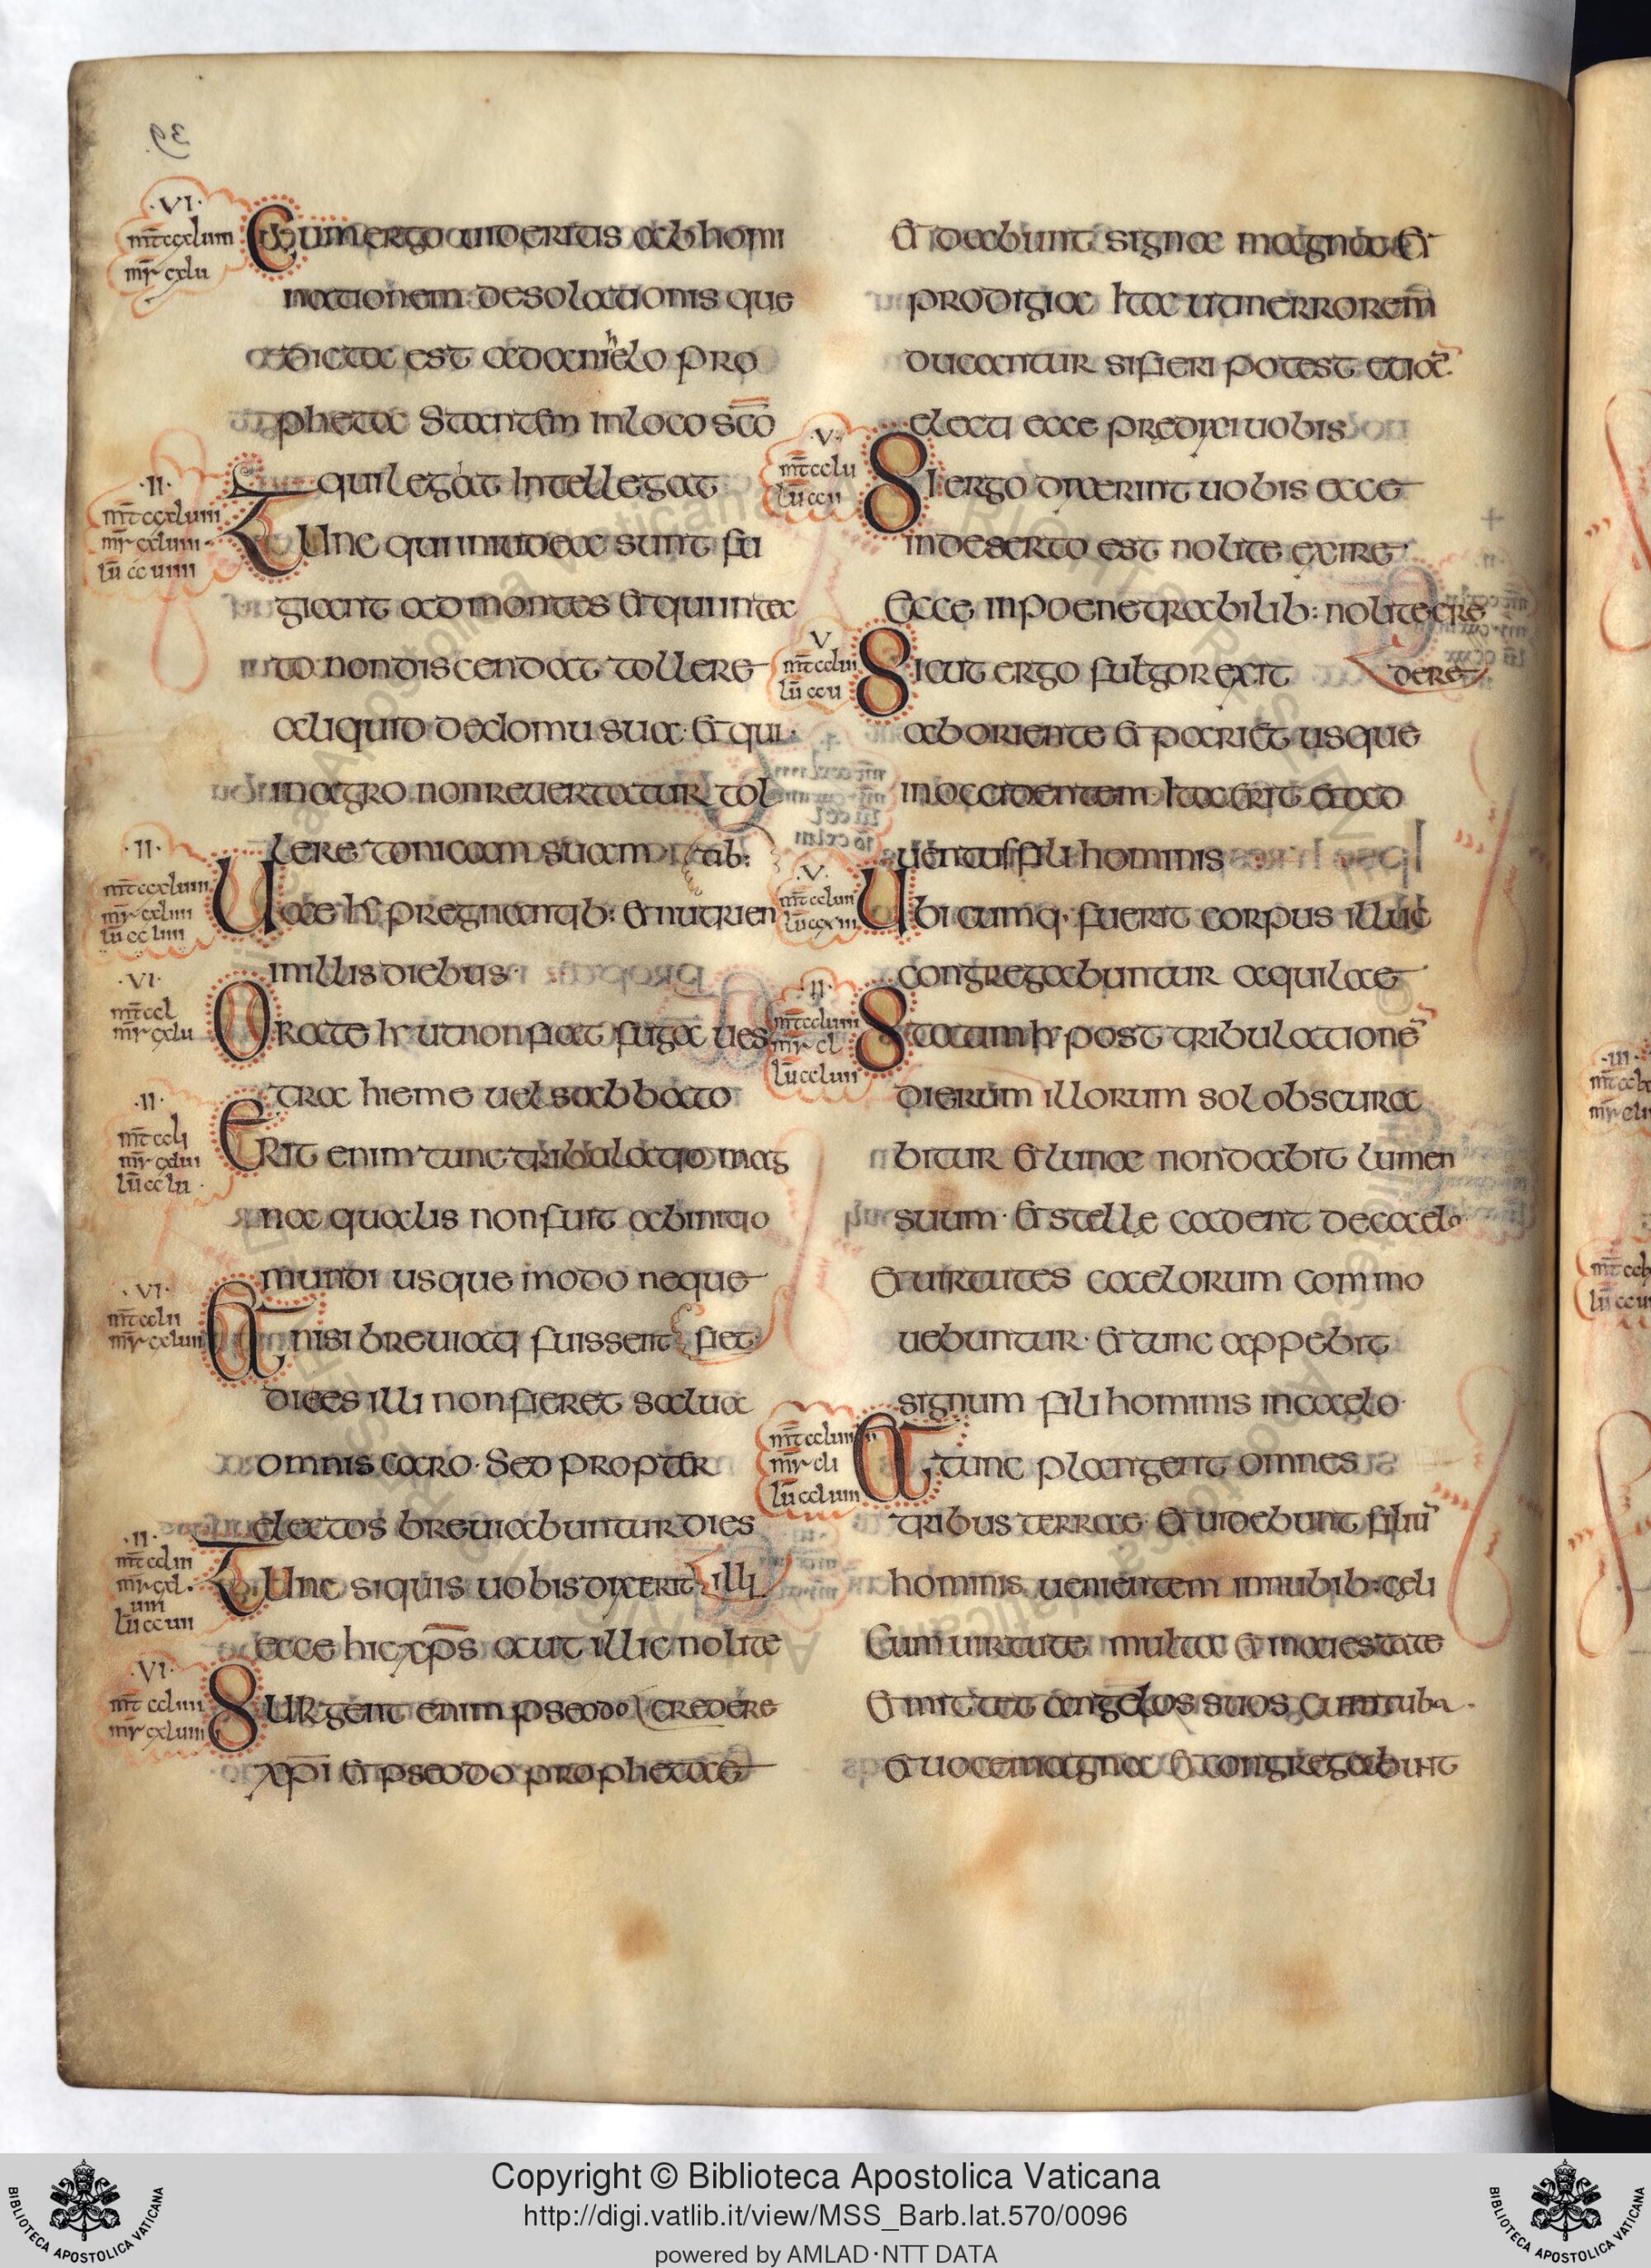 39
·VI·
mt ccxluiii
mr cxlii
Cum ergo uideritis abhomi
nationem desolationis que
dicta est adanihelo pro
pheta Stantem inloco sco
qui legat Intellegat
·II·
mt ccxluiiii
mr cxluii
TUnc qui iniudeae sunt fu
giant admontes et qui intec
to nondiscendat tollere
aliquid dedomu sua· et qui·
inagro non reuertatur tol
lere tonicam suam
·II·
Uae hr pregnantib: et nutrien
tib:
inillis diebus·
·VI·
mt ccl
mr cxlu
Orate hr utnonfiat fuga ues
tra hieme uel sabbato
·II·
mt ccli
lu cclu
Erit enim tunc tribulatio mag
na qualis nonfuit abinitio
mundi usque modo neque
fiet
·VI·
mt cclii
Et nisi breuiati fuissent
dies illi nonfieret salua
omnis caro· Sed propter
electos breuiabuntur dies
·II·
mt ccliii
TUnc siquis uobis dixerit illi
ecce hic xps aut illic nolite
credere
·VI·
mt ccliiii
SURgent enim pseodo
xpi et pseodo prophetae
Et dabunt signa magna et
prodigia Ita utinerrorem
ducantur sifieri potest etia
electi ecce predixi uobis
·V·
mt cclu
SI ergo dixerint uobis ecce
indeserto est nolite exire
Ecce inpoenetrabilib: nolite cre
dere
V
Sicut ergo fulgor exit
aboriente et pariet usque
inoccidentem Ita erit et ad
uentus fili hominis
·V·
Ubi cumq· fuerit corpus illuc
congregabuntur aquilae
·II·
mr cl
Statim hr post tribulatione
dierum illorum sol obscura
bitur et luna non dabit lumen
suum· et stelle cadent decaelo
et uirtutes caelorum commo
uebuntur· et tunc appebit
signum fili hominis incaelo·
mr cli
Et tunc plangent omnes
tribus terrae et uidebunt filiu
hominis uenientem innubib: celi
Cum uirtute multa et maiestate
et mittet angelos suos cum tuba
et uoce magna et congregabunt
Copyright © Biblioteca Apostolica Vaticana
http://digi.vatlib.it/view/MSS_Barb.lat.570/0096
powered by AMLAD·NTT DATA
BIBLIOTECA APOSTOLICA VATICANA
BIBLIOTECA APOSTOLICA VATICANA